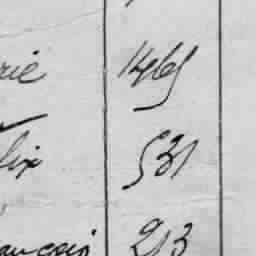 rie 1465
lix 531
ançois 213